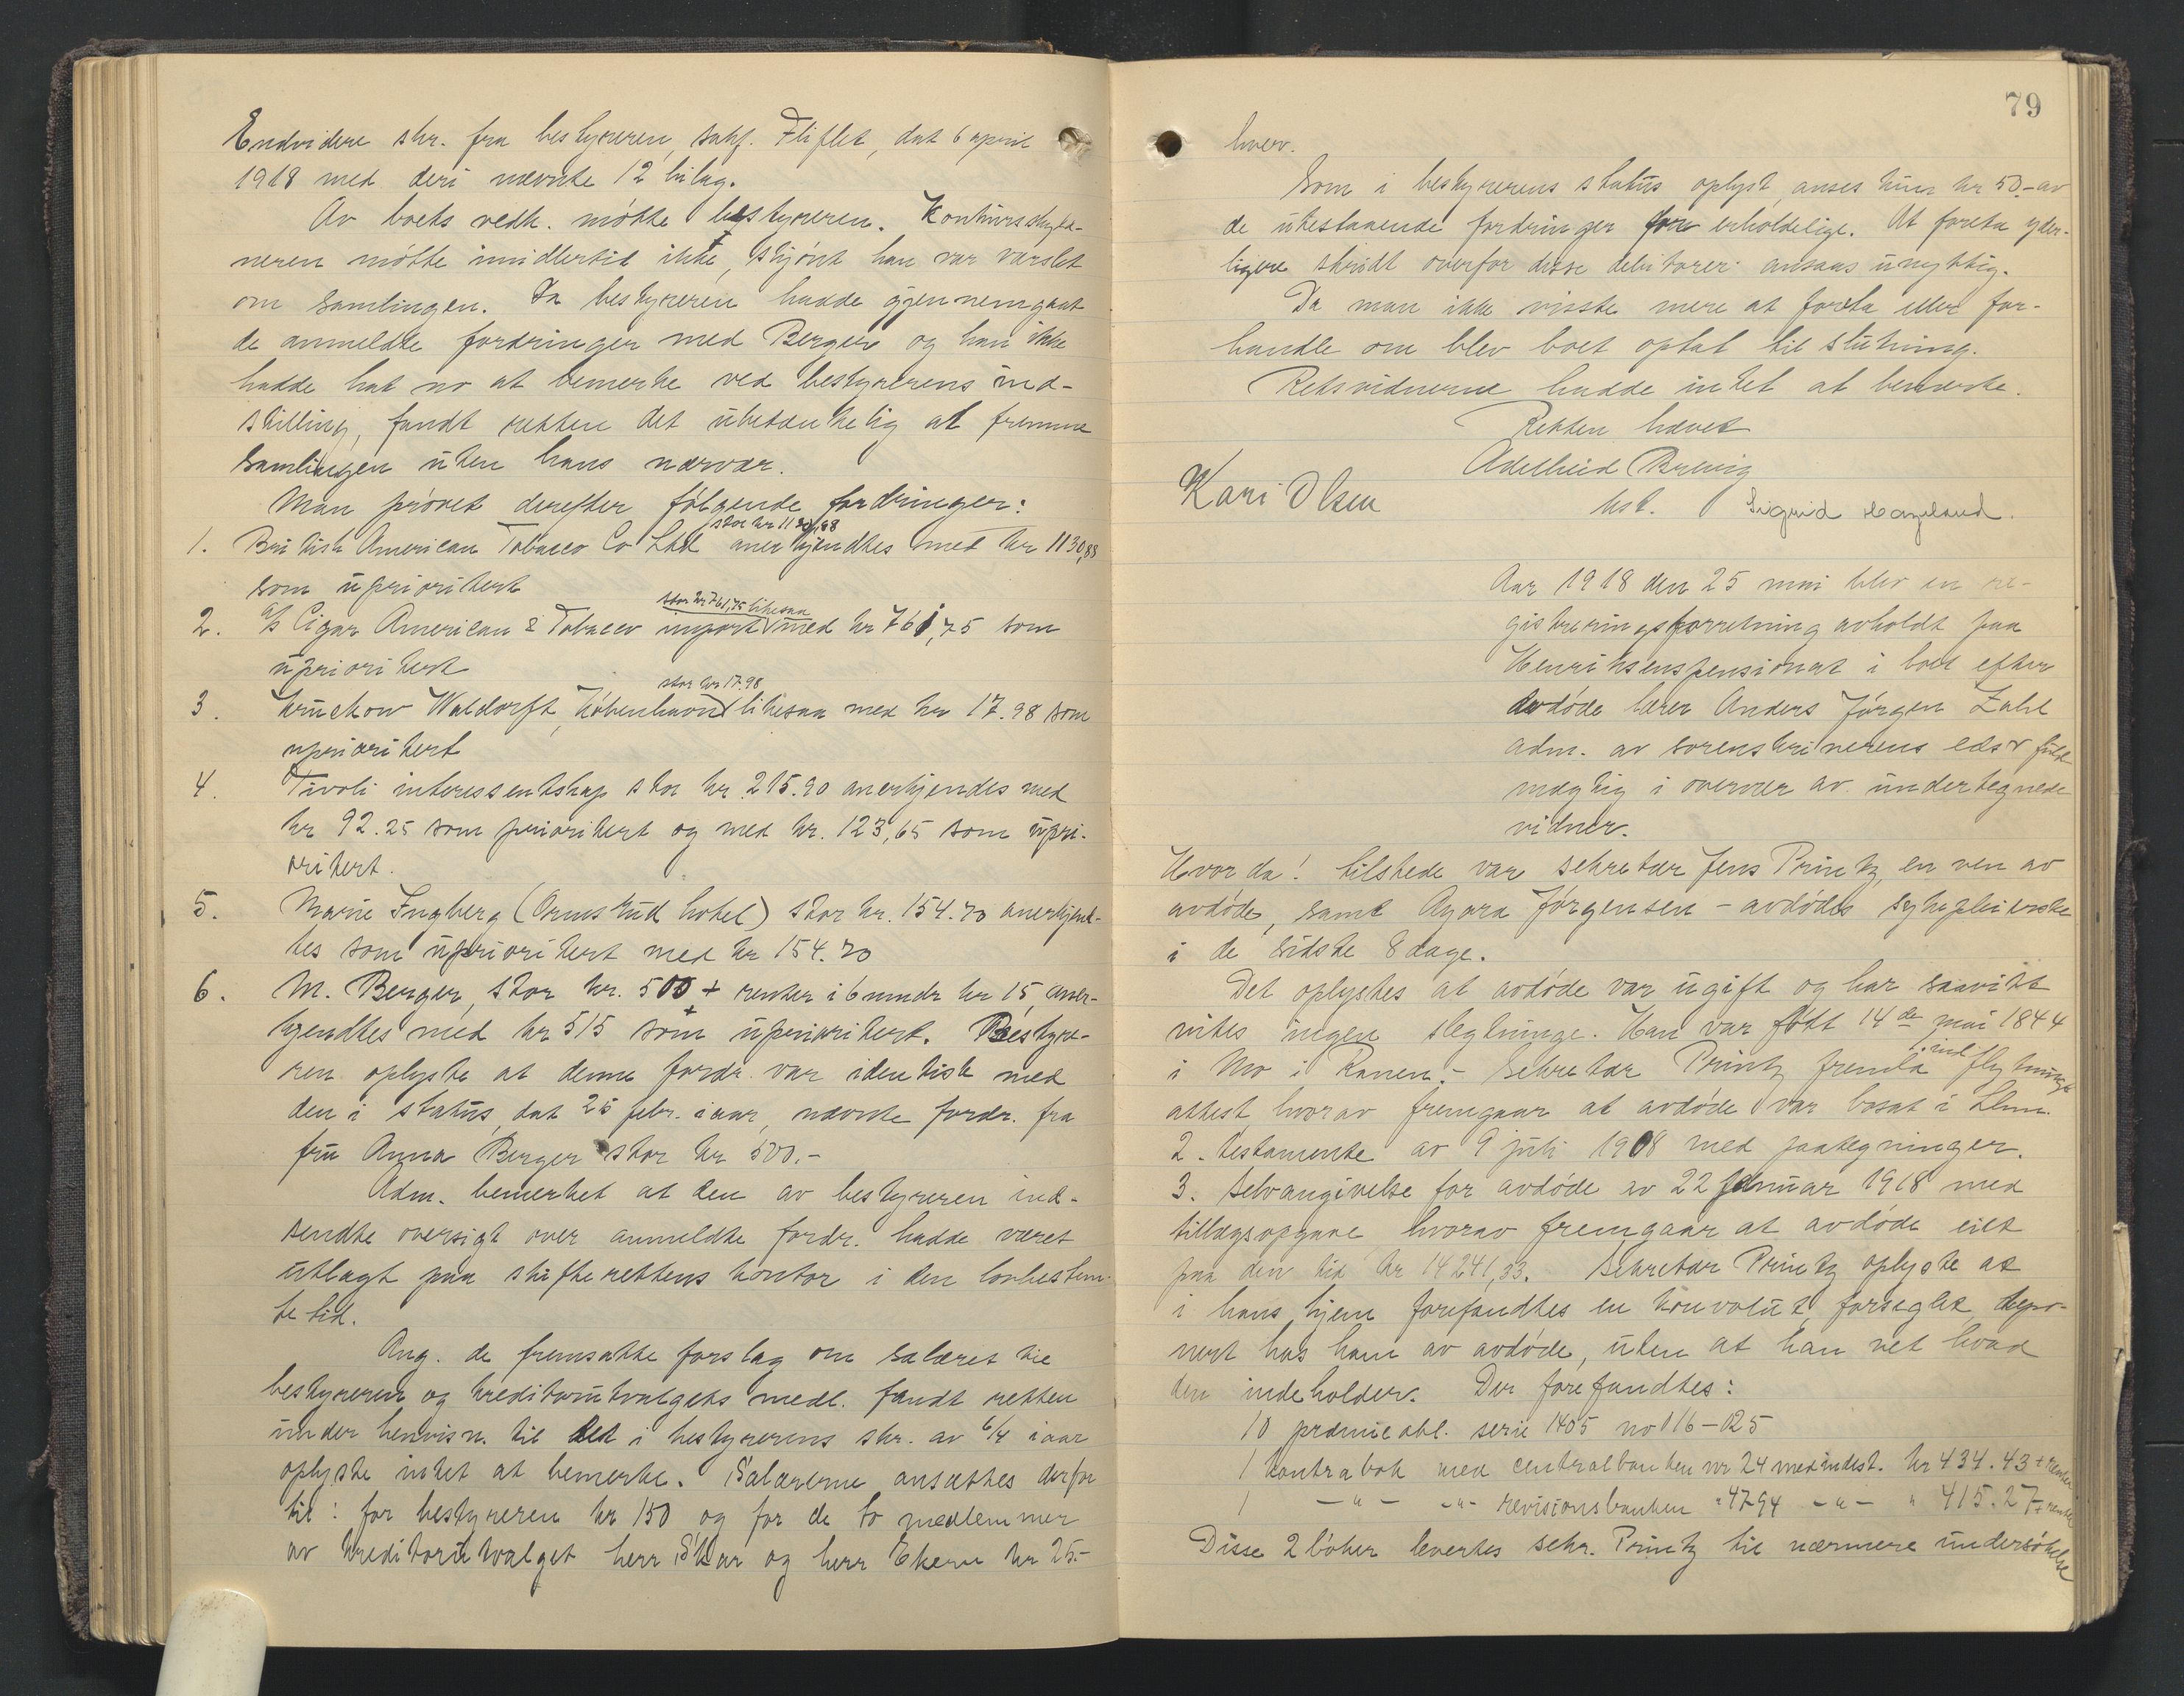 Endvidere skr. fra bestyreren, sakf. Fliflet, dat 6 april
1918 med deri nævnte 12 bilag.
Av boets vedk. møtte bestyreren. Konkursskyld-
neren møtte imidlertid ikke, skjønt han var varslet
om samlingen. Da bestyreren hadde gjennemgaat
de anmeldte fordringer med Berger og han ikke
hadde hat no at bemerke ved bestyrerens ind-
stilling, fandt retten det ubetænkelig at fremme
samlingen uten hans nærvær.
Man prøvet derefter følgende fordringer:
stor kr 1130,88
1. British American Tobacco Co Ltd anerkjendtes med kr 1130,88
som uprioritert
stor kr 761,75 likesaa
2. A/S Cigar American & Tobacco import med kr 761,75 som
uprioritert
stor kr 17.98
3. Krückow Waldorff, København likesaa med kr 17.98 som
uprioritert
4. Tivoli interessentskap stor kr. 215.90 anerkjendes med
kr 92.25 som prioritert og med kr. 123,65 som upri-
oritert.
5. Marie Ingberg (Ormstud hotel) stor kr. 154.70 anerkjend-
tes som uprioritert med kr 154.70
6. M. Berger, stor kr. 500 + renter i 6 mndr kr 15 aner-
kjendtes med kr 515 som uprioritert. Bestyre-
ren oplyste at denne fordr. var identisk med
den i status, dat 25 febr. iaar, nævnte fordr. fra
fru Anna Berger stor kr 500.-
Adm. bemerket at den av bestyreren ind-
sendte oversigt over anmeldte fordr. hadde været
utlagt paa skifterettens kontor i den lovbestem-
te tid.
Ang. de fremsatte forslag om salæret til
bestyreren og kreditorutvalgets medl. fandt retten
under henvisn. til det i bestyrerens skr. av 6/4 iaar
oplyste intet at bemerke. Salærerne ansættes derfor
til: for bestyreren kr 150 og for de to medlemmer
av kreditorutvalget herr Skar og herr Ekern kr 25.-
79
hver.
Som i bestyrerens status oplyst, anses kun kr 50.- av
de utestaaende fordringer for erholdelige. At foreta yder-
ligere skridt overfor disse debitorer ansaas unyttig.
Da man ikke visste mere at foreta eller for-
handle om blev boet optat til slutning.
Retsvidnerne hadde intet at bemerke.
Retten hævet
Adelheid Brevig
Kari Olsen
kst. Sigrid Hageland.
Aar 1918 den 25 mai blev en re-
gistreringsforretning avholdt paa
Henriksenspensionat i boet efter
avdøde lærer Anders Jørgen Zahl
adm. av sorenskriverens edsv fuld-
mægtig i overvær av undertegnede
vidner.
Hvor da! tilstede var sekretær Jens Printz, en ven av
avdøde, samt Agora Jørgensen - avdødes sykepleierske
i de sidste 8 dage.
Det oplystes at avdøde var ugift og har saavidt
vites ingen slegtninge. Han var født 14de mai 1844
i Mo i Ranen. - Sekretær Printz fremla indflytnings
attest, hvorav fremgaar at avdøde var bosat i Lhmr.
2. Testamente av 9 juli 1908 med paategninger.
3. Selvangivelse for avdøde av 22 januar 1918 med
tillægsopgave hvorav fremgaar at avdøde eiet
paa den tid kr 14241,33. Sekretær Printz oplyste at
i hans hjem forefandtes en konvolut, forseglet, depo-
nert hos ham av avdøde, uten at han vet hvad
den indeholder. Der forefandtes:
10 præmieobl. serie 1405 no 016-025
1 kontrabok med centralbanken nr 24 med indest. kr 434.43 + renter
1 -"- -"- revisionsbanken "4794 -"- " 415.27 + renter
Disse 2 bøker levertes sekr. Printz til nærmere undersøkelse